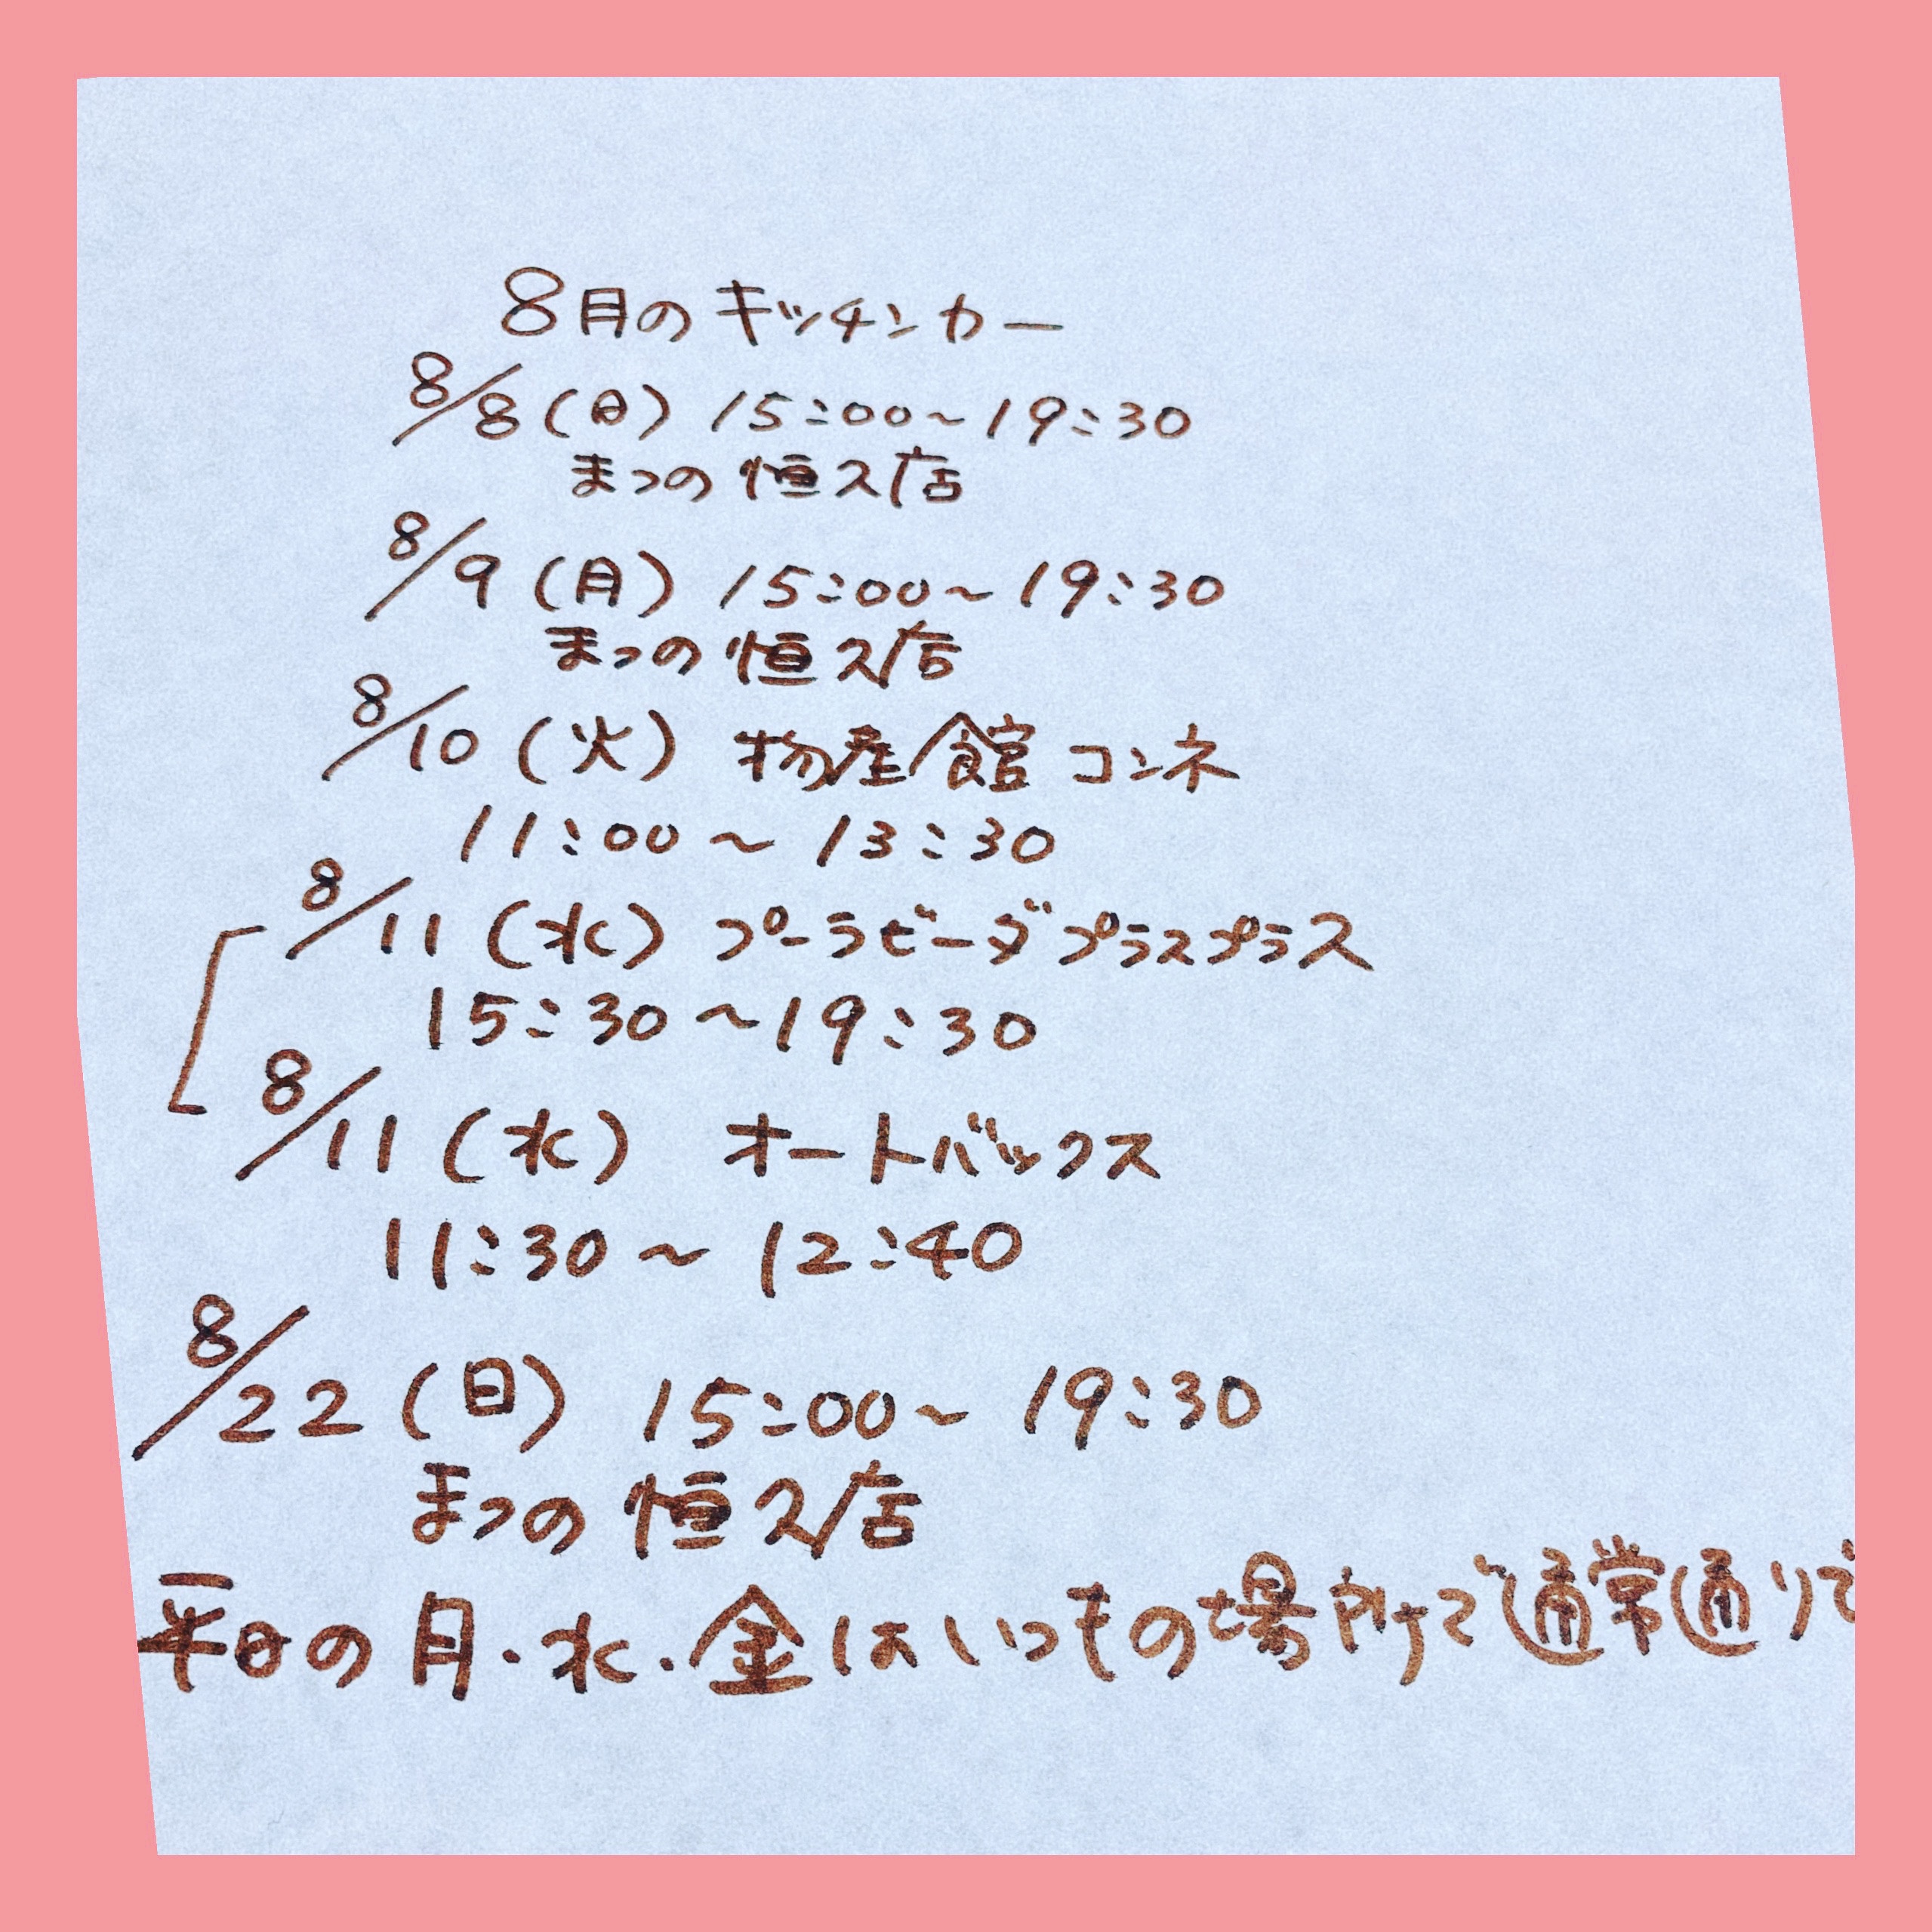 8月のキッチンカー
8/8(日) 15:00~19:30
まつの 恒久店
8/9(月) 15:00~19:30
まつの 恒久店
8/10(火) 物産館コンネ
11:00~13:30
8/11(水) プーラビーダプラスプラス
15:30~19:30
8/11(水) オートバックス
11:30~12:40
8/22(日) 15:00~19:30
まつの 恒久店
平日の月・水・金はいつもの場所で通常通りで